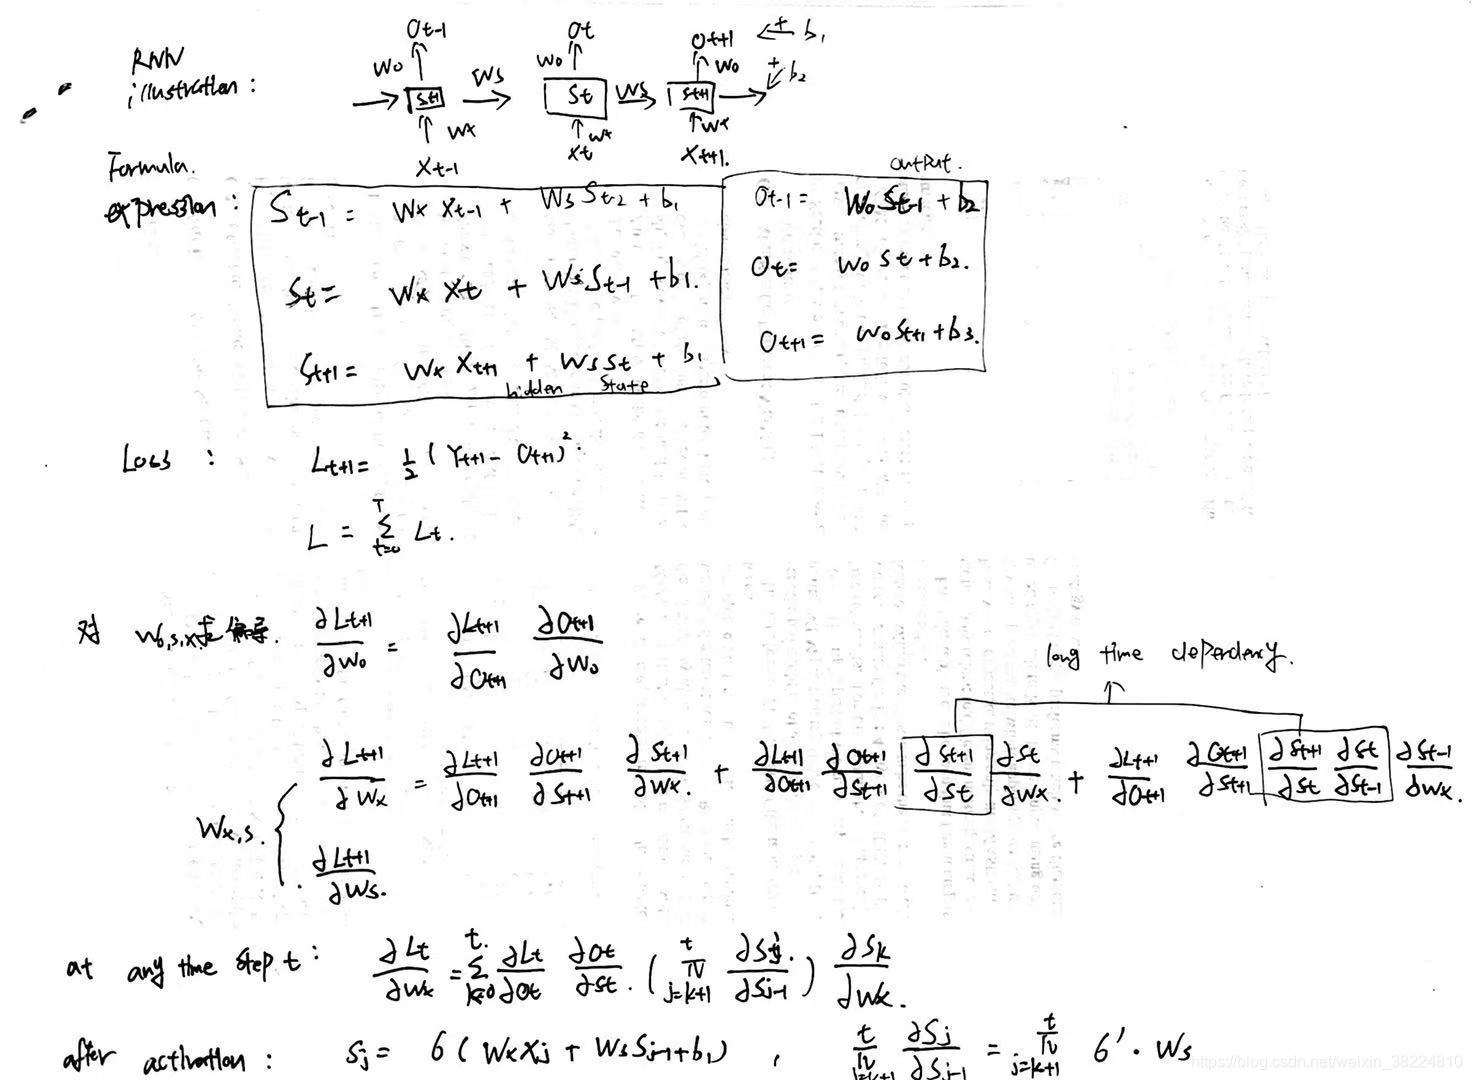 RNN
illustration :
Ot-1 Ot Ot+1 ← + b₁
Wo Wo Wo + b₂
St-1 Ws St Ws St+1
Wx Wx Wx
Xt-1 Xt Xt+1.
Formula.
expression :
output.
St-1 = Wx Xt-1 + Ws St-2 + b₁ Ot-1 = Wo St-1 + b₂
St = Wx Xt + Ws St-1 + b₁. Ot = Wo St + b₂.
St+1 = Wx Xt+1 + Ws St + b₁ Ot+1 = Wo St+1 + b₃.
hidden state
Loss : Lt+1 = ½ (Yt+1 - Ot+1)².
L = Σ_{t=0}^{T} Lt.
对 Wo,s,x求偏导. ∂Lt+1/∂Wo = ∂Lt+1/∂Ot+1 ∂Ot+1/∂Wo
long time dependency.
Wx,s. { ∂Lt+1/∂Wx = ∂Lt+1/∂Ot+1 ∂Ot+1/∂St+1 ∂St+1/∂Wx. + ∂Lt+1/∂Ot+1 ∂Ot+1/∂St+1 ∂St+1/∂St ∂St/∂Wx. + ∂Lt+1/∂Ot+1 ∂Ot+1/∂St+1 ∂St+1/∂St ∂St/∂St-1 ∂St-1/∂Wx.
∂Lt+1/∂Ws.
at any time step t : ∂Lt/∂Wx = Σ_{k=0}^{t} ∂Lt/∂Ot ∂Ot/∂St. (∏_{j=k+1}^{t} ∂Sj/∂Sj-1) ∂Sk/∂Wx.
after activation : Sj = 6 (Wx Xj + Ws Sj-1 + b₁) , ∏_{j=k+1}^{t} ∂Sj/∂Sj-1 = ∏_{j=k+1}^{t} 6' · Ws
https://blog.csdn.net/weixin_38224810